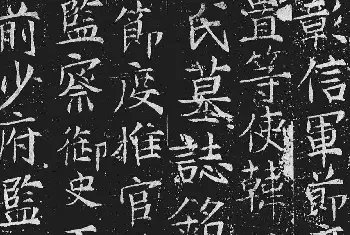 彰信軍節
置等使韓
氏墓誌銘
節度推官
監察御史
前少府監